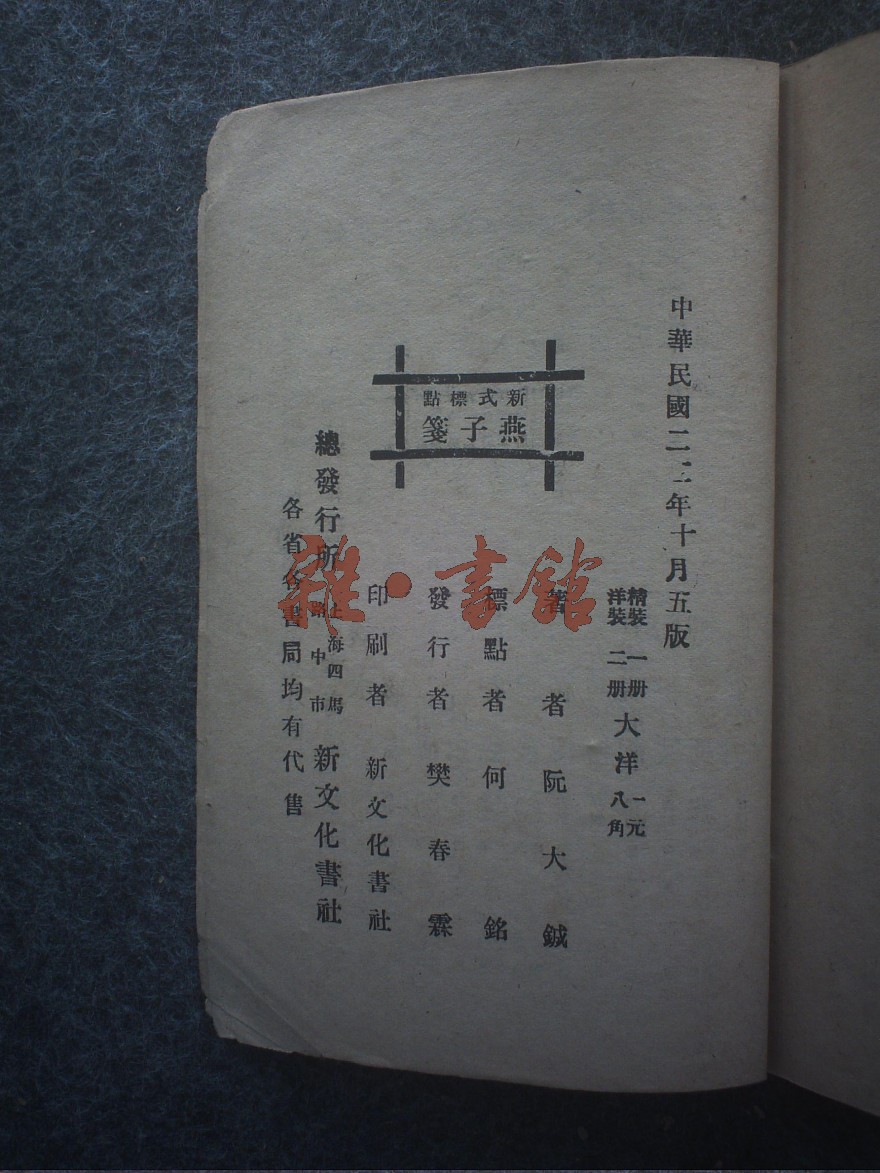 中華民國二二年十月五版
精裝一册 大洋 一元
洋裝二册 八角
新式標點
燕子箋
著者 阮大鋮
標點者 何銘
發行者 樊春霖
印刷者 新文化書社
總發行所 上海四馬路中市 新文化書社
各省各書局均有代售
雜·書館